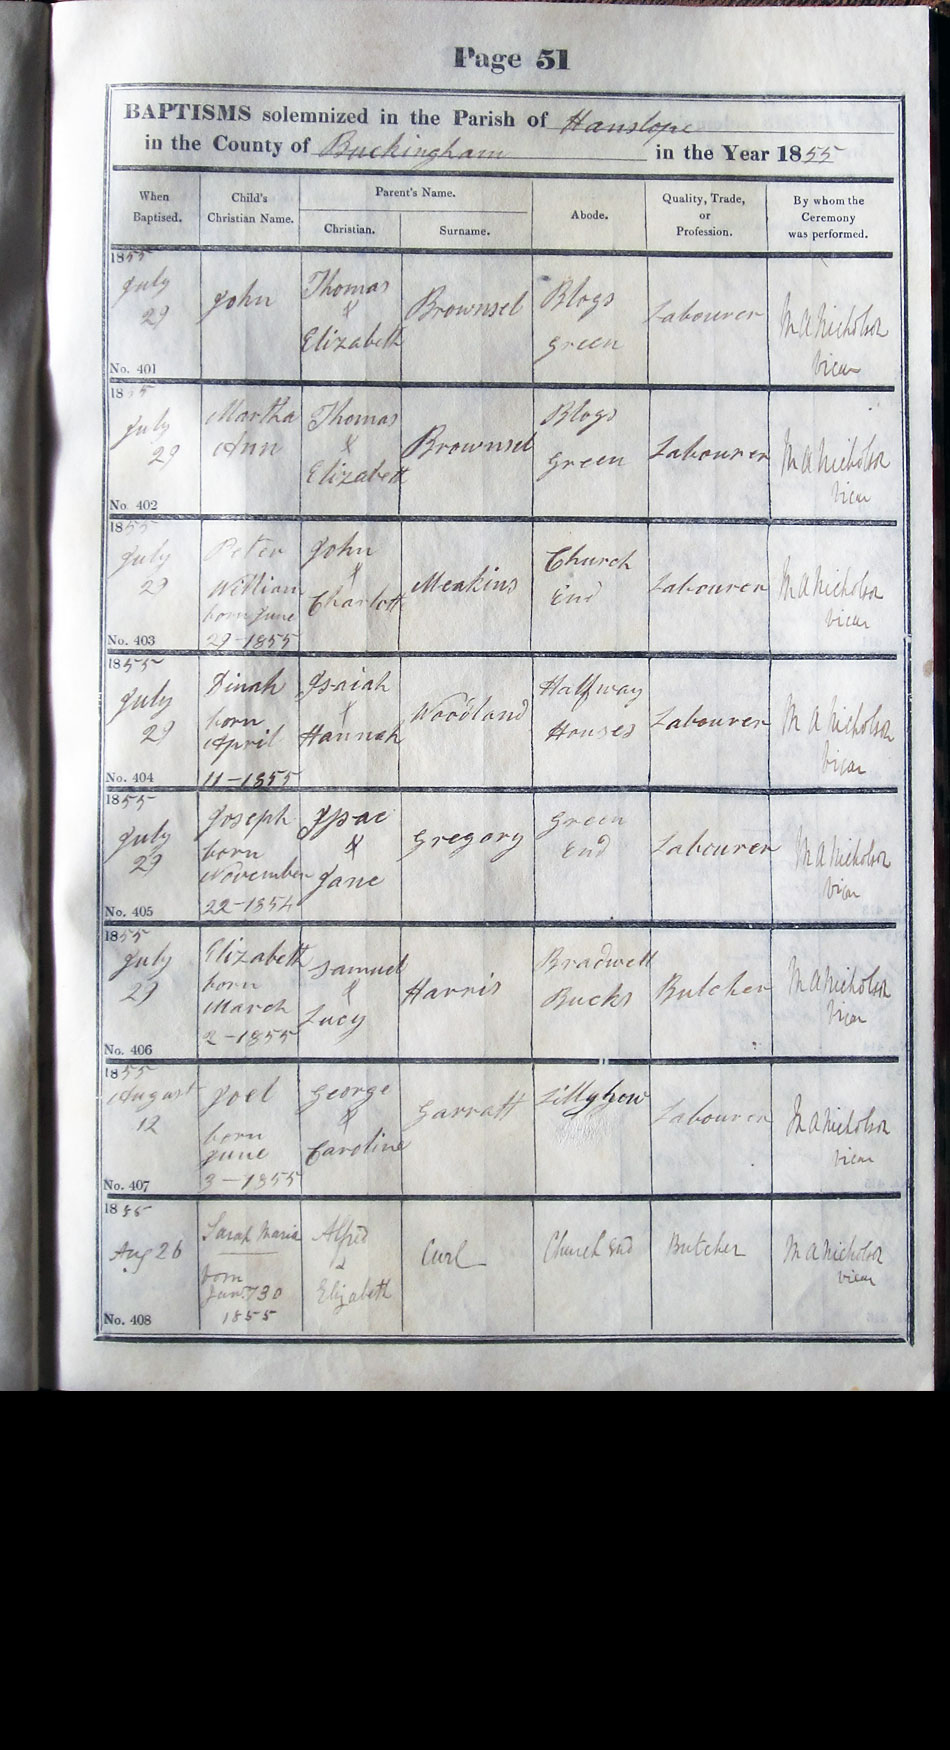 Page 51
BAPTISMS solemnized in the Parish of Hanslope
in the County of Buckingham in the Year 1855
When Baptised.
Child's Christian Name.
Parent's Name.
Christian.
Surname.
Abode.
Quality, Trade, or Profession.
By whom the Ceremony was performed.
1855
July
29
No. 401
John
Thomas
&
Elizabeth
Brownsel
Blogs
Green
Labourer
M A Nicholson
Vicar
1855
July
29
No. 402
Martha
Ann
Thomas
&
Elizabeth
Brownsel
Blogs
Green
Labourer
M A Nicholson
Vicar
1855
July
29
No. 403
Peter
William
born June
29-1855
John
&
Charlott
Meakins
Church
End
Labourer
M A Nicholson
Vicar
1855
July
29
No. 404
Dinah
born
April
11-1855
Isaiah
&
Hannah
Woodland
Halfway
Houses
Labourer
M A Nicholson
Vicar
1855
July
29
No. 405
Joseph
born
November
22-1854
Isaac
&
Jane
Gregory
Green
End
Labourer
M A Nicholson
Vicar
1855
July
29
No. 406
Elizabeth
born
March
2-1855
Samuel
&
Lucy
Harris
Bradwell
Bucks
Butcher
M A Nicholson
Vicar
1855
August
12
No. 407
Joel
born
June
3-1855
George
&
Caroline
Garratt
Labourer
M A Nicholson
Vicar
1855
Aug 26
No. 408
Sarah Maria
born
30
1855
Alfred
&
Elizabeth
Curl
Church End
Butcher
M A Nicholson
Vicar